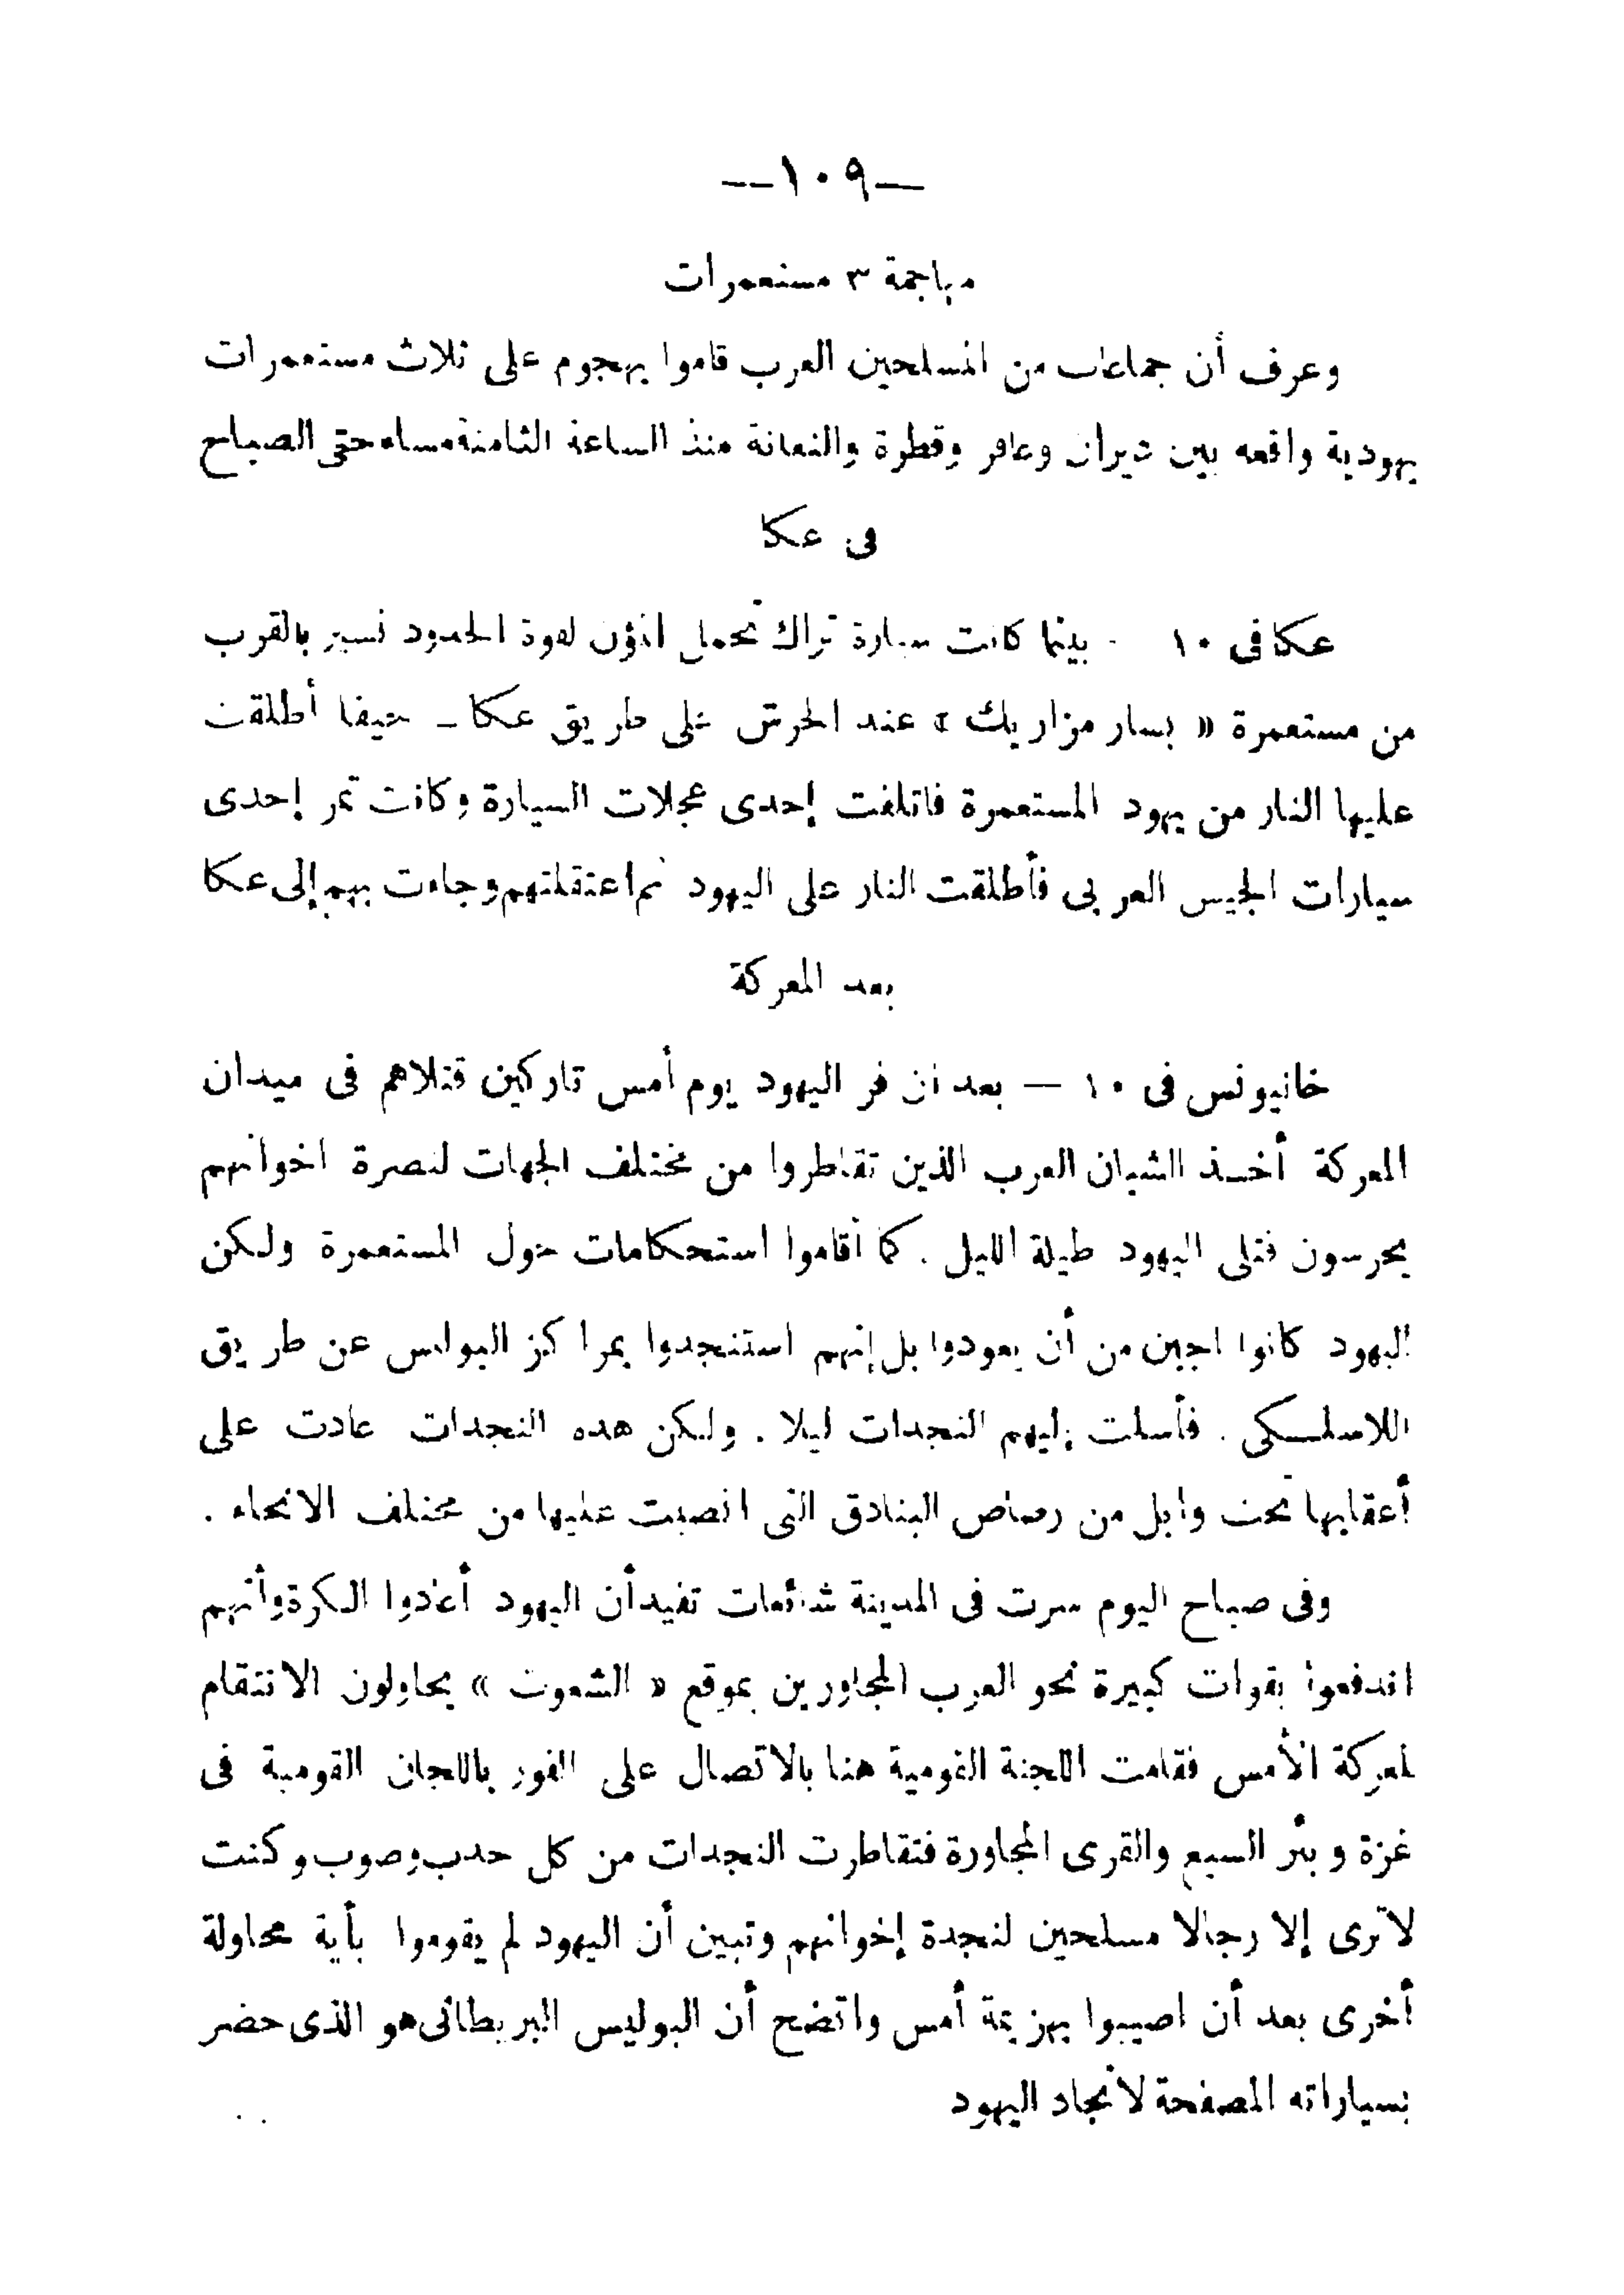 —١٠٩—
مهاجمة ٣ مستعمرات
وعرف أن جماعات من المسلحين العرب قاموا بهجوم على ثلاث مستعمرات
يهودية واقعه بين ديران وعاقر وقطرة والنعانة منذ الساعة الثامنة مساء حتى الصباح
فى عكا
عكا فى ١٠ - بينما كانت سيارة تراك تحمل المؤن لقوة الحدود تسير بالقرب
من مستعمرة « يسار مزاريك » عند الحرش على طريق عكا ـ حيفا أطلقت
عليها النار من يهود المستعمرة فاتلفت إحدى عجلات السيارة وكانت تمر إحدى
سيارات الجيس العربى فأطلقت النار على اليهود ثم اعتقلتهم وجاءت بهم إلى عكا
بعد المعركة
خانيونس فى ١٠ — بعد ان فر اليهود يوم أمس تاركين قتلاهم فى ميدان
المعركة أخذ الشبان العرب الذين تقاطروا من مختلف الجهات لنصرة اخوانهم
يحرسون قتلى اليهود طيلة الليل . كما أقاموا استحكامات حول المستعمرة ولكن
اليهود كانوا اجبن من أن يعودوا بل إنهم استنجدوا بمراكز البوليس عن طريق
اللاسلكى . فأسلت إليهم النجدات ليلا . ولكن هده النجدات عادت على
أعقابها تحت وابل من رصاص البنادق التى انصبت عليها من مختلف الانحاء .
وفى صباح اليوم سرت فى المدينة شائعات تفيد أن اليهود أعادوا الكرة وأنهم
اندفعوا بقوات كبيرة نحو العرب المجاورين بموقع « الشعوت » يحاولون الانتقام
لمعركة الأمس فقامت اللجنة القومية هنا بالاتصال على الفور باللجان القومية فى
غزة وبئر السبع والقرى المجاورة فتقاطرت النجدات من كل حدب وصوب وكنت
لا ترى إلا رجالا مسلحين لنجدة إخوانهم وتبين أن اليهود لم يقوموا بأية محاولة
أخرى بعد أن اصيبوا بهزيمة أمس واتضح أن البوليس البريطانى هو الذى حضر
بسياراته المصفحة لانجاد اليهود